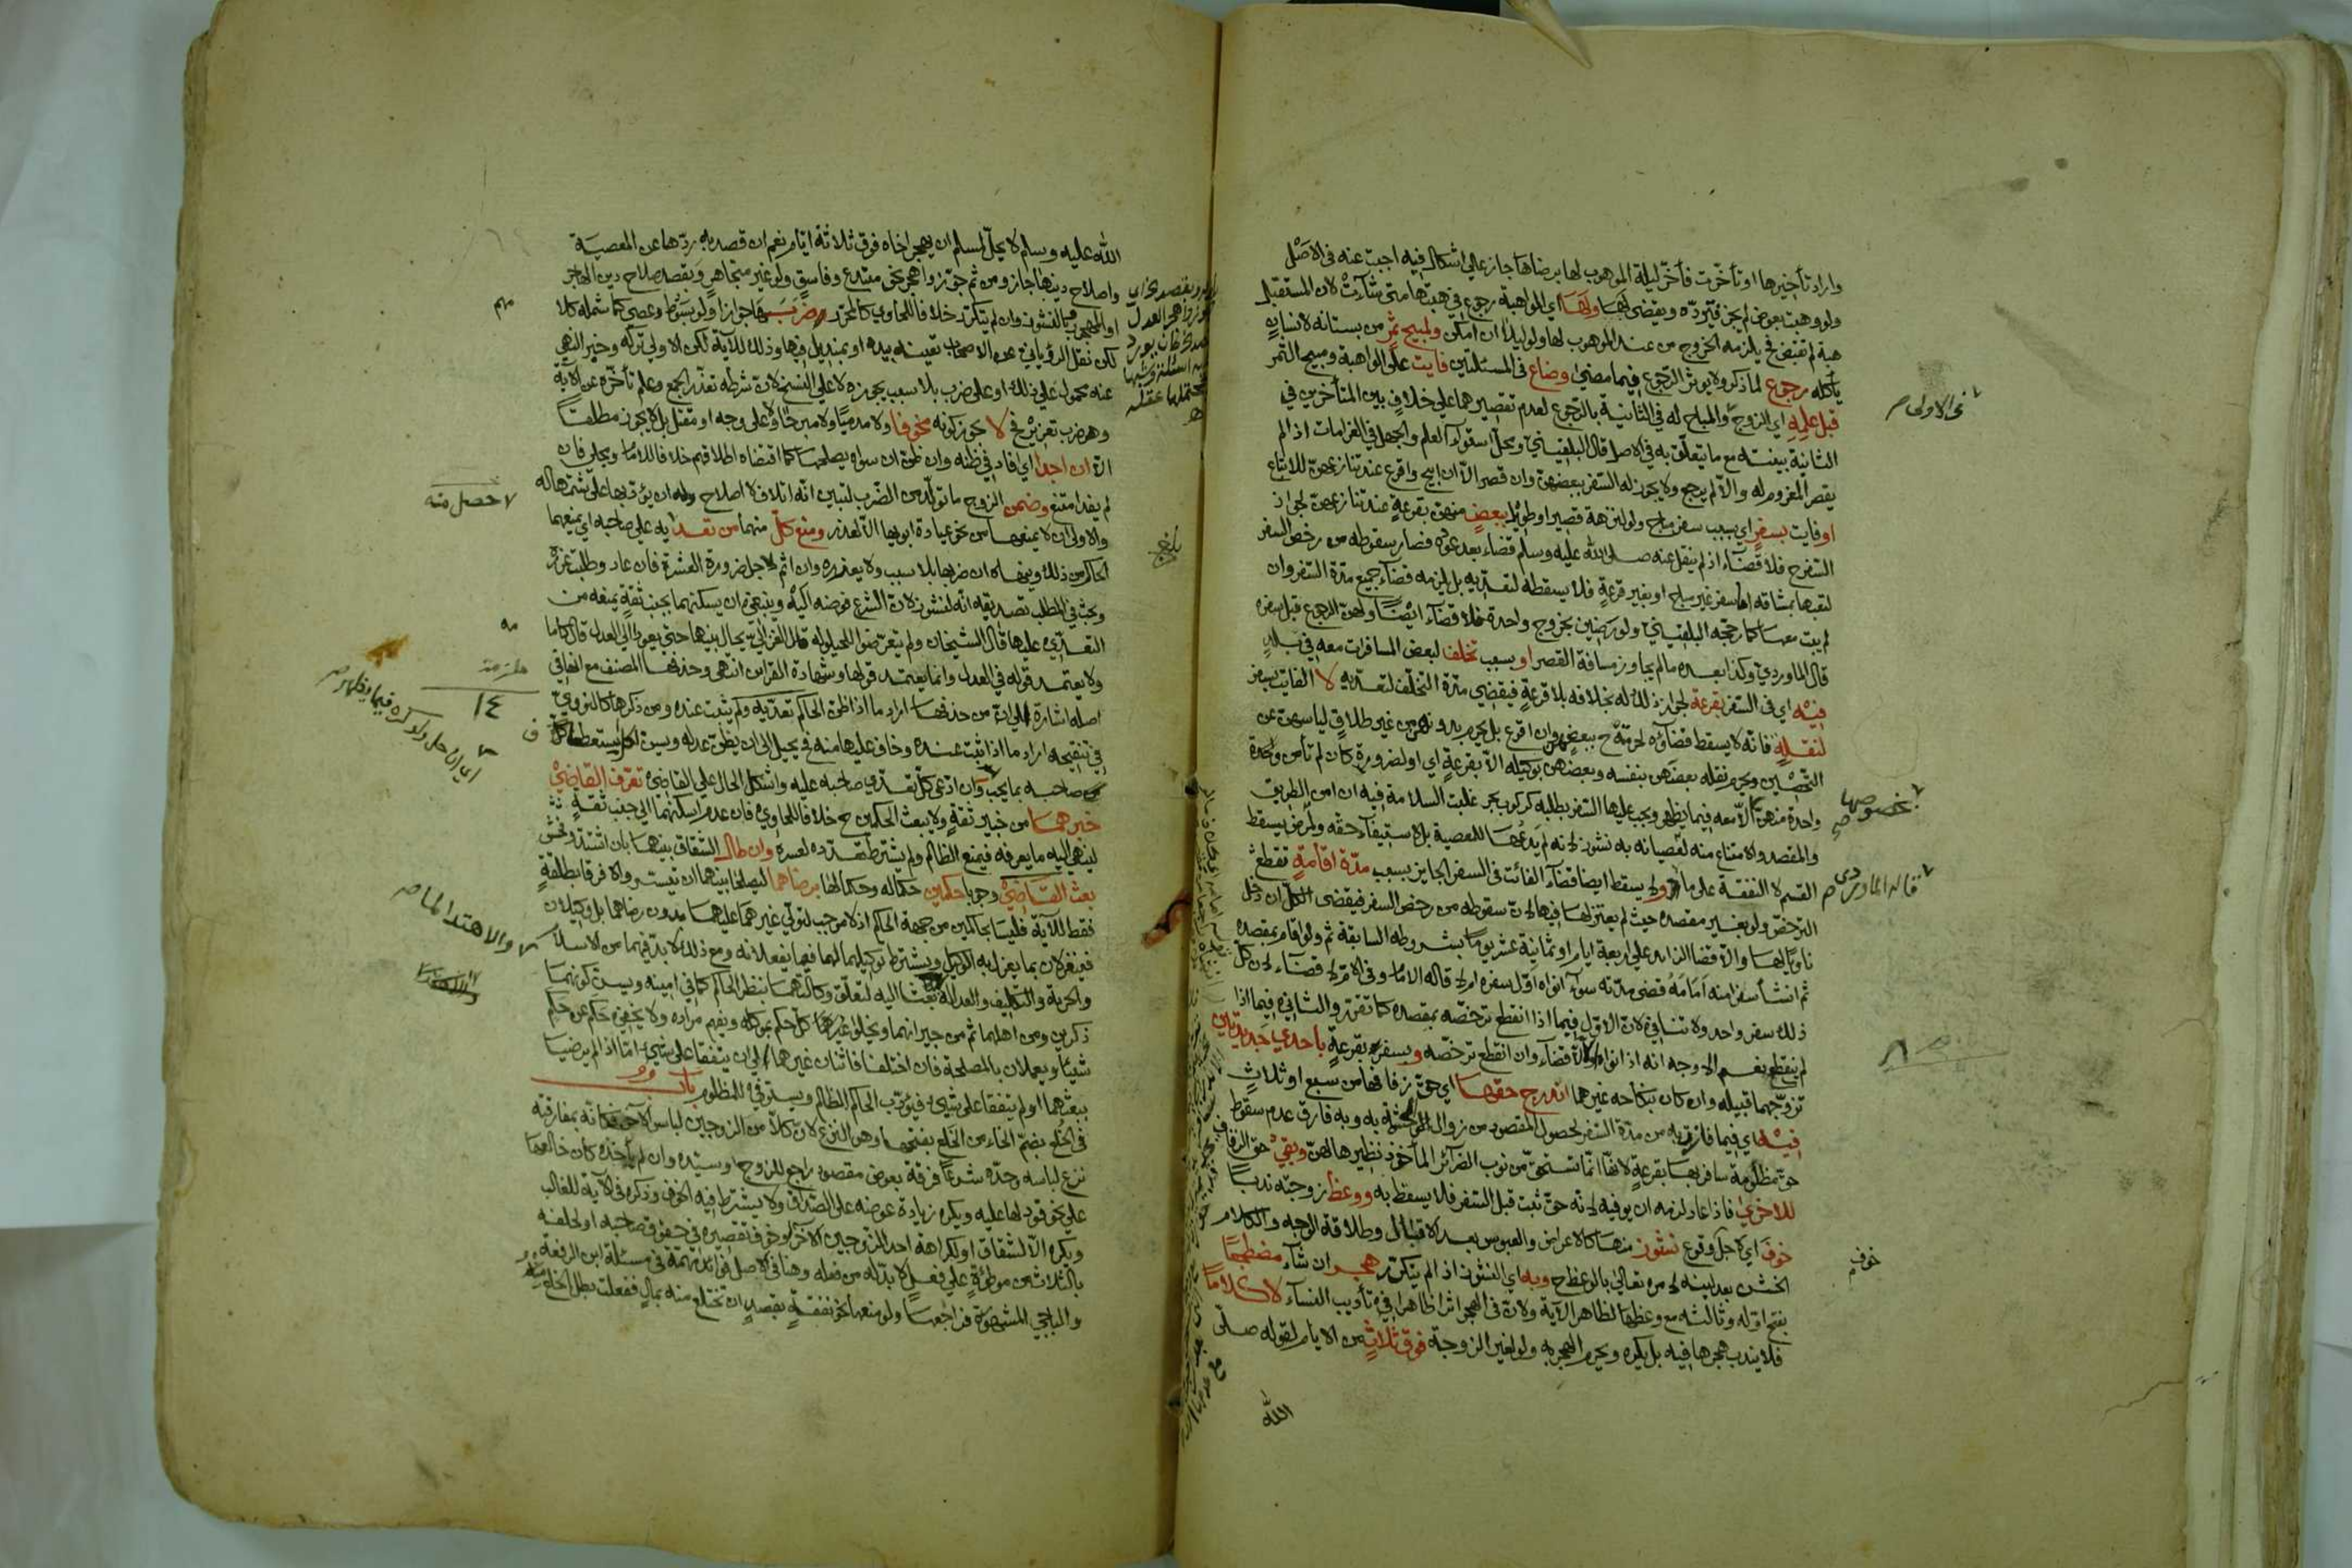 واراد تأخيرها او تأخرت فأخر ليلة الموهوب لها برضاها جاز على اشكال فيه اجبت عنه فى الاصل
ولو وهبت بعوض لم يجز فترده ويقضى لها ولها اى الواهبة رجوع فى هبتها متى شآءت لان المستقبل
هبة لم تقبض فح يلزمه الخروج من عند الموهوب لها ولو ليلا ان امكن ولمبيح ثمر من بستانه لانسان
يأكله رجوع لما ذكر ولا يؤثر الرجوع فيما مضى وضاع فى المسئلتين فايت على الواهبة ومبيح الثمر
قبل علمه اى الزوج والمباح له فى الثانية بالرجوع لعدم تقصيرهما على خلاف بين المتأخرين في
الثانية بينته مع ما يتعلق به فى الاصل قال البلقينى ومحل استوآء العلم والجهل فى الغرامات اذا لم
يقصر المغروم له والا لم يرجع ولا يجوز له السفر ببعضهن وان قصر الا ان ابيح واقرع عند تنازعهن للاتباع
او فايت بسفر اى بسبب سفر مباح ولو لنزهة قصير او طويل ببعض منهن بقرعة عند تنازعهن لجواز
السفر ح فلا قضآء اذ لم ينقل عنه صلى الله عليه وسلم قضاء بعد عوده فصار سقوطه من رخص السفر
لتعبها بمشاقه اما سفر غير مباح او بغير قرعة فلا يسقطه لتعديه بل يلزمه قضآء جميع مدة السفر وان
لم يبت معها كما رجحه البلقينى ولو رضين بخروج واحدة فلا قضآء ايضا ولهن الرجوع قبل سفره
قال الماوردى وكذا بعده ما لم يجاوز مسافة القصر او بسبب تخلف لبعض المسافرات معه فى بلد
فيه اى فى السفر بقرعة لجواز ذلك له بخلافه بلا قرعة فيقضى مدة التخلف لتعديه لا الفايت بسفر
لنقلة فانه لا يسقط قضآؤه لحرمته ح ببعضهن وان اقرع بل يحرم بدونهن من غير طلاق لياسهن عن
التحصين ويحرم نقله بعضهن بنفسه وبعضهن بوكيله الا بقرعة اى او لضرورة كان لم تأمن واحدة
واحدة منهن الا معه فيما يظهر ويجب عليها السفر بطلبه كركوب بحر غلبت السلامة فيه ان امن الطريق
والمقصد والامتناع منه لعصيانه به نشوز لانه لم يدعها للمعصية بل لاستيفآء حقه ولمرض يسقط
القسم لا النفقة على ما ولا يسقط ايضا قضآء الفائت فى السفر الجايز بسبب مدة اقامة تقطع
الترخص ولو بغير مقصده حيث لم يعتزلها فيها لان سقوطه من رخص السفر فيقضى الكل ان دخل
ناويا لها والا قضا الزائد على اربعة ايام او ثمانية عشر يوما بشروطه السابقة ثم ولو اقام بمقصده
ثم انشأ سفرا منه امامه قضى مدته سوآء انواه اول سفره ام لا قاله الامام وفى الام لا قضآء لان كل
ذلك سفر واحد ولا تنافى لان الاول فيما اذا انقطع ترخصه بمقصده كما تقرر والثانى فيما اذا
لم ينقطع نعم الاوجه انه اذا نواه لا قضآء وان انقطع ترخصه وبسفره بقرعة باحدى جديدتين
تزوجهما قبيله وان كان بنكاحه غيرهما اندرج حقها اى حق زفافها من سبع او ثلاث
فيه اى فيما فازت به من مدة السفر لحصول المقصود من زوال الحشمة به وبه فارق عدم سقوط
حق مظلومة سافر بها بقرعة لانها انما تستحق من نوب الضرائر المأخوذ نظيرها لهن وبقى حق الزفاف
للاخرى فاذا عاد لزمه ان يوفيه لانه حق ثبت قبل السفر فلا يسقط به ووعظ زوجته ندبا
خوف اى لاجل وقوع نشوز منها كالاعراض والعبوس بعد الاقبال وطلاقة الوجه والكلام
الخشن بعد لينه لامره تعالى بالوعظ ح وبه اى النشوز اذا لم يتكرر هجر ان شآء مضطجعا
بفتح اوله وثالثه مع وعظها لظاهر الآية ولان فى الهجر اثرا ظاهرا فى تأديب النسآء لا كلاما
فلا يندب هجرها فيه بل يكره ويحرم الهجر به ولو لغير الزوجة فوق ثلاث من الايام لقوله صلى
الله
فى الاولى ص
بخصوصها
قاله الماوردى ص
خوف
الله عليه وسلم لا يحل لمسلم ان يهجر اخاه فوق ثلاثة ايام نعم ان قصد به ردها عن المعصية
واصلاح دينها جاز ومن ثم جوزوا هجر نحو مبتدع وفاسق ولو غير متجاهر وبقصد صلاح دين الهاجر
او المهجور وبالنشوز وان لم يتكرر خلافا للحاوى كالمحرر ضربها جوازا ولو بسوط وعصى كما شمله كلا
لكن نقل الرويانى عن الاصحاب تعينه بيده او بمنديل فيها وذلك للآية لكن الاولى تركه وخبر النهى
عنه محمول على ذلك او على ضرب بلا سبب يجوزه لا على النسخ لان شرطه تعذر الجمع وعلم تأخره عن الآية
وهو ضرب تعزير فح لا يجوز كونه مخوفا ولا مدميا ولا مبرحا ولا على وجه او مقتل بل لا يجوز مطلقا
الا ان اجدا اى افاد فى ظنه وان ظن ان سواه يصلحها كما اقتضاه اطلاقهم خلافا للامام ومجلى فان
لم يفد امتنع وضمن الزوج ما تولد من الضرب لتبين انه اتلاف لا اصلاح وله ان يؤدبها على شتمها له
والاولى ان لا يمنعها من نحو عيادة ابويها الا لعذر ومنع كل منهما من تعدايه على صاحبه اى يمنعهما
الحاكم من ذلك وينهاه ان ضربها بلا سبب ولا يعذره وان اثم لاجل ضرورة العشرة فان عاد وطلبت عزره
وبحث فى المطلب تصديقه انه لنشوز لان الشرع فوضه اليه وينبغى ان يسكنهما بجنب ثقة يمنعه من
التعدى عليها قال الشيخان ولم يتعرضوا للحيلولة وقال الغزالى يحال بينهما حتى يعود الى العدل قال الامام
ولا يعتمد قوله فى العدل وانما يعتمد قولها وشهادة القراين انتهى وحذفها المصنف مع اتفاقى
اصله اشارة الى ان من حذفها اراد ما اذا ظن الحاكم تعديه ولم يثبت عنده ومن ذكرها كالنووى
فى تنقيحه اراد ما اذا ثبت عنده وخاف عليها منه فيحيل الى ان يظن عدله
صاحبه بما يجب وان ادعى كل تعدى صاحبه عليه واشكل الحال على القاضى تعرف القاضى
خبرهما من خبير ثقة ولا يبعث الحكمين ح خلافا للحاوى فان عدم اسكنهما الى جنب ثقة ثم
لينهى اليه ما يعرفه فيمنع الظالم ولم يشترط تعدده لعسره وان طال الشقاق بينهما بان اشتد وفحش
بعث القاضى وجوبا حكمين حكما له وحكما لها برضاهما ليصلحا بينهما ان تيسر والا فرقا بطلقة
فقط للآية فليسا بحاكمين من جهة الحاكم اذ لا موجب لتولى غيرهما عليهما بدون رضاهما بل وكيلان
فينعزلان بما ينعزل به الوكيل ويشترط توكيلهما لهما فيما يفعلانه ومع ذلك لا بد فيهما من الاسلام
والحرية والتكليف والعدالة بعثا اليه لتعلق وكالتهما بنظر الحاكم كما فى امينه ويسن كونهما
ذكرين ومن اهلهما ثم من جيرانهما ويخلو كل حكم بموكله ويفهم مراده ولا يخفى حكم عن حكم
شيئا ويعملان بالمصلحة فان اختلفا فاثنان غيرهما الى ان يتفقا على شىء اما اذا لم يرضيا
ببعثهما او لم يتفقا على شىء فيؤدب الحاكم الظالم ويستوفى للمظلوم باب
فى الخلع بضم الخاء من الخلع بفتحها وهو النزع لان كلا من الزوجين لباس الآخر فكانه بمفارقته
نزع لباسه وحده شرعا فرقة بعوض مقصود راجع للزوج او سيده وان لم يأخذه كان خالعها
على نحو قود لها عليه ويكره زيادة عوضه على الصداق ولا يشترط فيه الخوف وذكره فى الآية للغالب
ويكره الا لشقاق او لكراهة احد الزوجين الآخر او خوف تقصيره فى حقوق صاحبه او لحلفه
بالثلاث من موطؤة على فعل لا بد له من فعله وهنا فى الاصل فوائد مهمة فى مسئلة ابن الرفعة
والباجى المشهورة فراجعها ولو منعها نحو نفقة بقصد ان تختلع منه بمال ففعلت بطل الخلع
مهم
لا حصل منه
مه
١٤
والاهتدا لما ص
بلغ